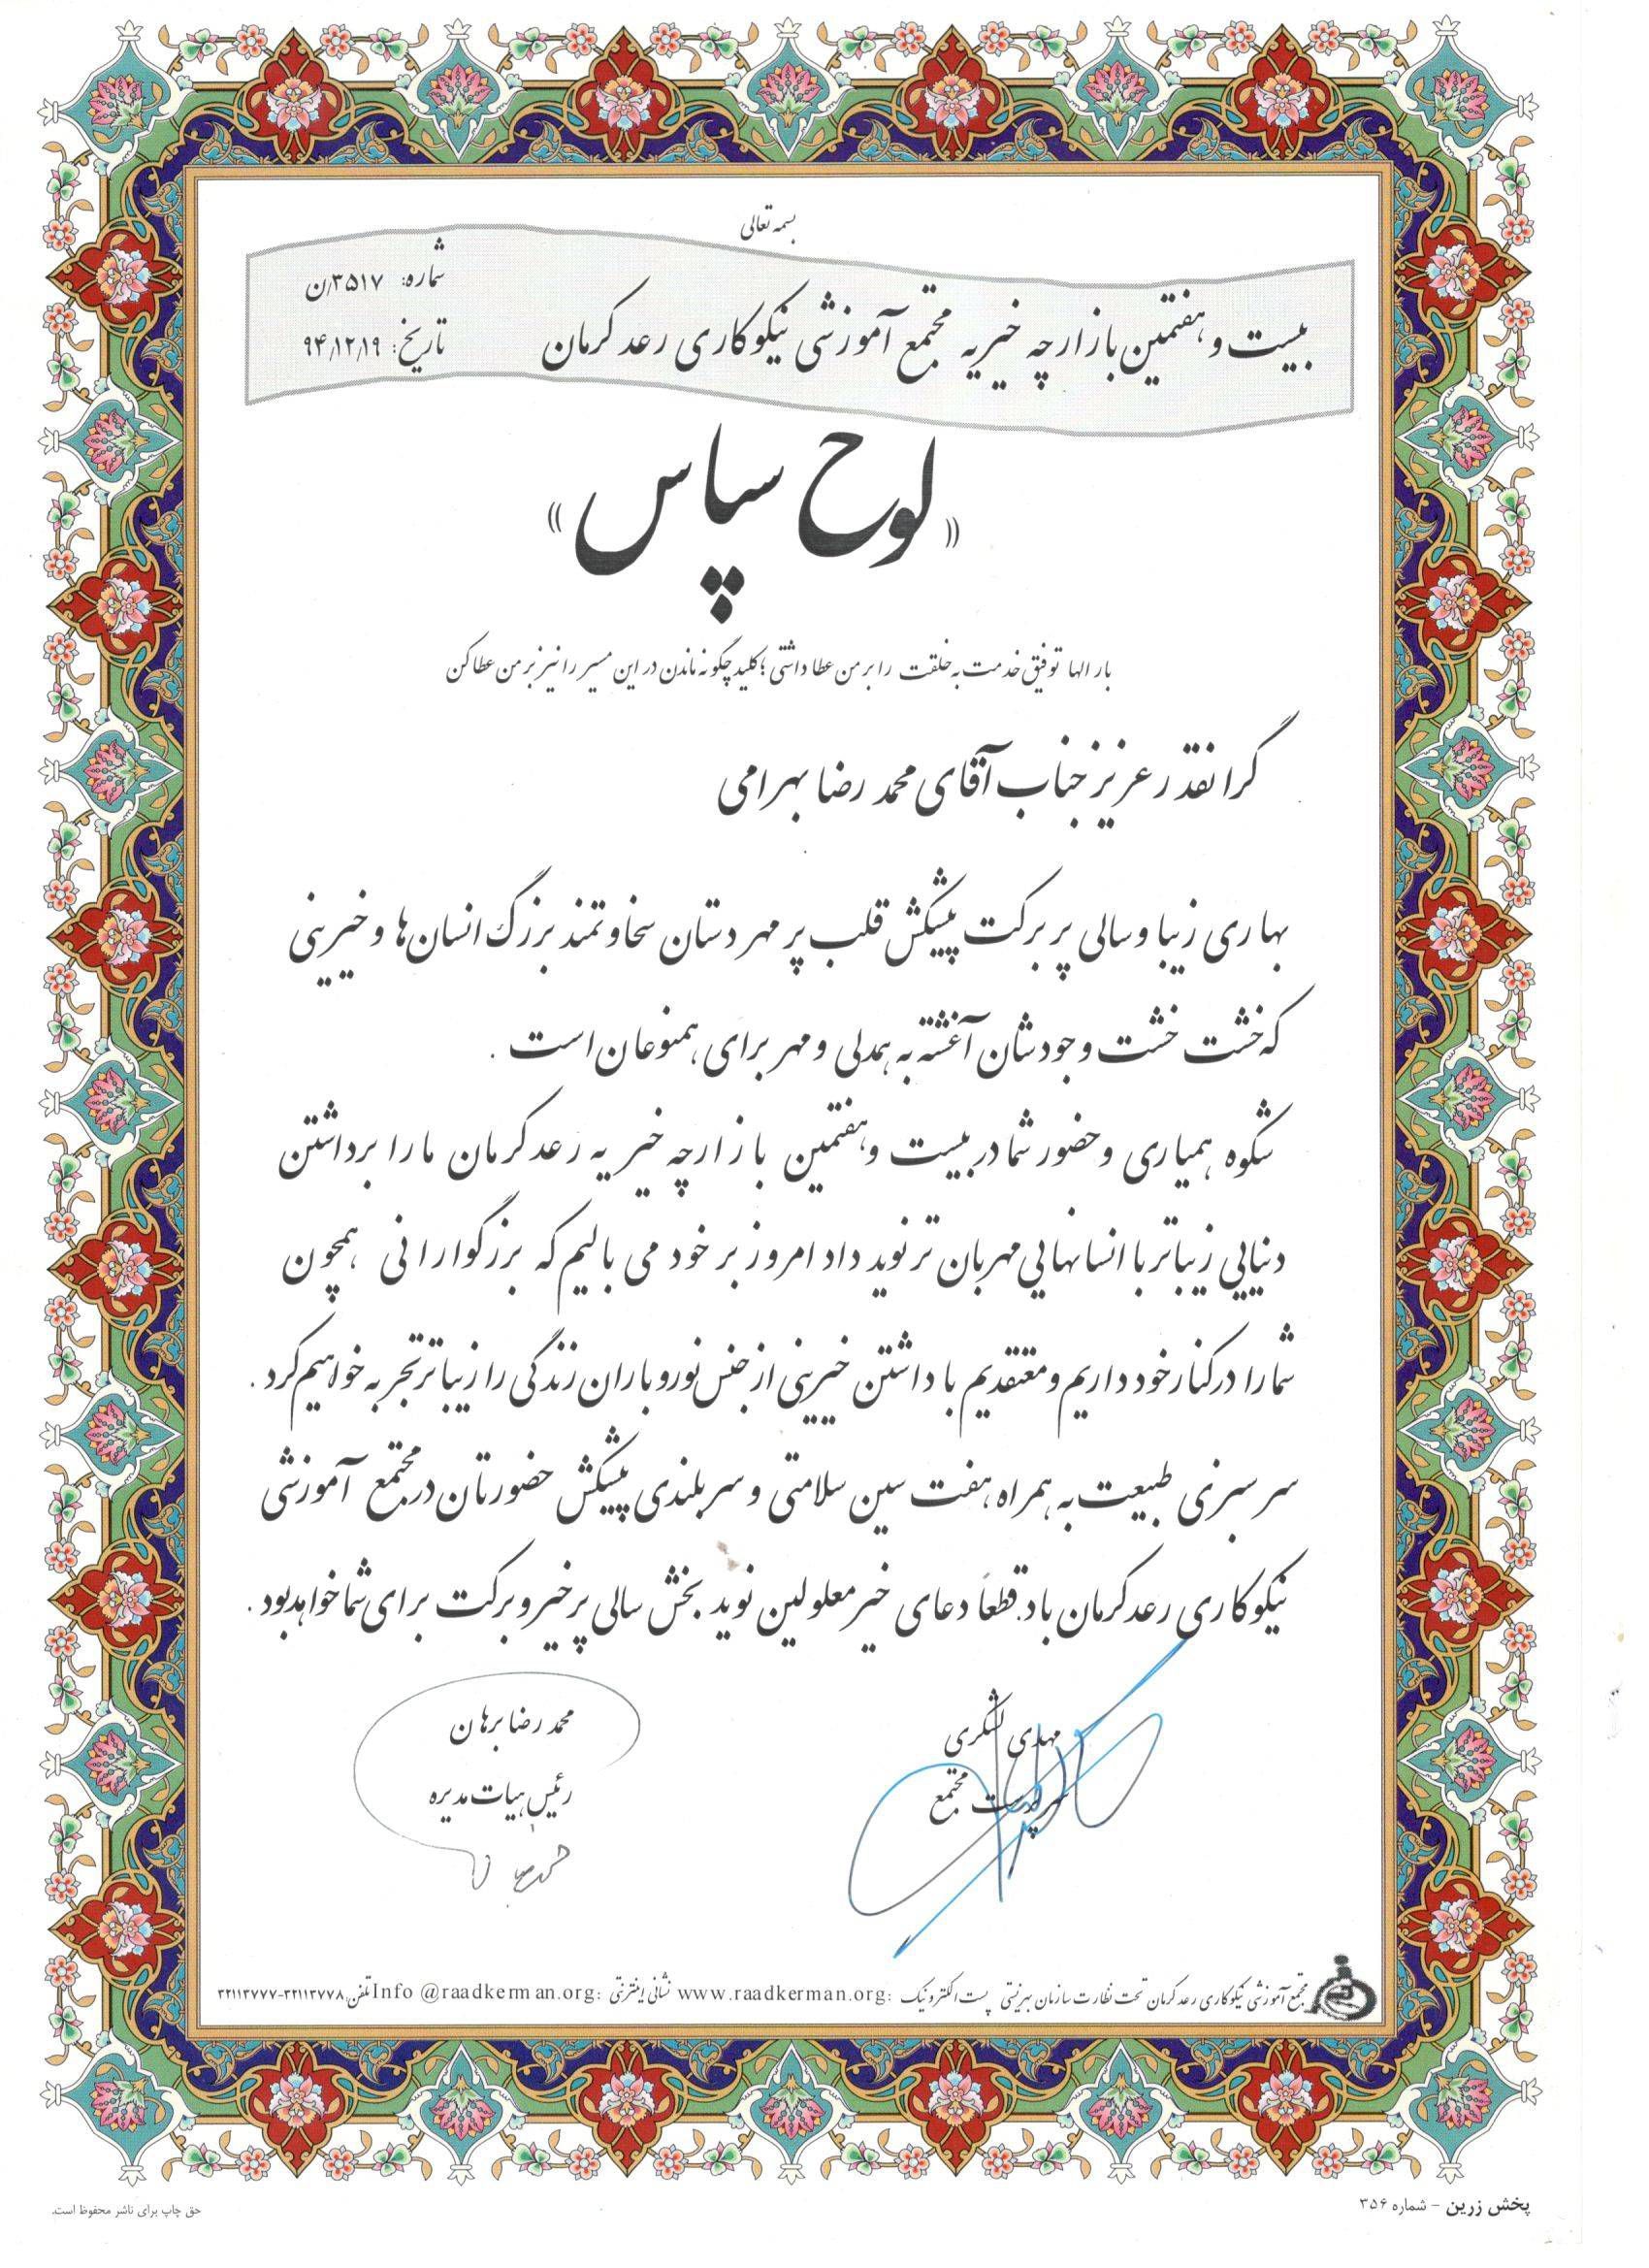 بسمه تعالی
شماره: ۳۵۱۷/ن
بیست و هفتمین بازارچه خیریه مجتمع آموزشی نیکوکاری رعد کرمان
تاریخ: ۹۴/۱۲/۱۹
«لوح سپاس»
بار الها توفیق خدمت به خلقت را بر من عطا داشتی؛ کلید چگونه ماندن در این مسیر را نیز بر من عطا کن
گرانقدر عزیز جناب آقای محمد رضا بهرامی
بهاری زیبا و سالی پر برکت پیشکش قلب پر مهر دستان سخاوتمند بزرگ انسان ها و خیرینی
که خشت خشت وجودشان آغشته به همدلی و مهر برای همنوعان است .
شکوه همیاری و حضور شما در بیست و هفتمین بازارچه خیریه رعد کرمان ما را برداشتن
دنیایی زیباتر با انسانهایی مهربان تر نوید داد امروز بر خود می بالیم که بزرگوارانی همچون
شما را در کنار خود داریم و معتقدیم با داشتن خیرینی از جنس نور و باران زندگی را زیباتر تجربه خواهیم کرد .
سر سبزی طبیعت به همراه هفت سین سلامتی و سربلندی پیشکش حضورتان در مجتمع آموزشی
نیکوکاری رعد کرمان باد. قطعاً دعای خیر معلولین نوید بخش سالی پر خیر و برکت برای شما خواهد بود .
مهدی لشکری
سرپرست مجتمع
محمد رضا برهان
رئیس هیات مدیره
مجتمع آموزشی نیکوکاری رعد کرمان تحت نظارت سازمان بهزیستی پست الکترونیک :www.raadkerman.org نشانی اینترنتی :Info @raadkerman.org تلفن: ۳۲۱۱۳۷۷۷-۳۲۱۱۳۷۷۸
پخش زرین - شماره ۳۵۶
حق چاپ برای ناشر محفوظ است.